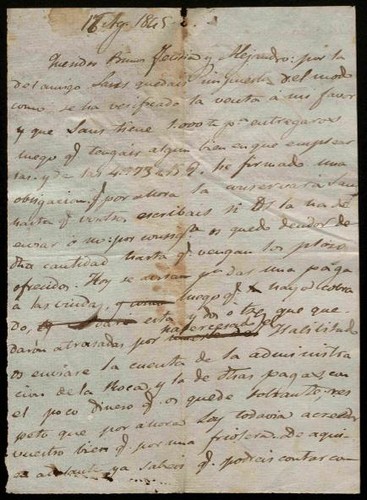 17 Ag. 1845
Queridos Bruno, Felisia y Alejandro: por la
del amigo Sans quedais impuestos del modo
como se ha verificado la venta á mi favor
y que Sans tiene 1.000 ps entregaros
luego q.e tengais algun bien en que emplear
las y de las 4073 rs q. he firmado una
obligacion q. por ahora la conservará Sans
hasta q. vosotros escribais si se la ha de
enviar ó no: por consig.te os quedo deudor de
dha cantidad hasta q.e vengan los plazos
ofrecidos. Hoy se abran p.a das una paga
á las viudas, luego q.e haya cobra
do, esta y dos o tres que que
darán atrasadas por haber cesado el Habilitado
os enviare la cuenta de la administra
cion de la Roca y la de otras pagas, con
el poco dinero q. os quede sobrante, res
peto que por ahora soy todavia acreedor
vuestro bien q.e por una friolera. De aqui
en adelante ya sabeis q. podeis contar con